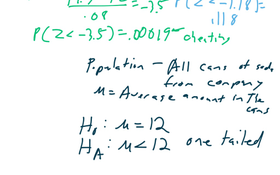 = -3.5
.08
P(Z < -1.18) =
.1118
P(Z < -3.5) = .00019
cheating
Population - All cans of soda
from company
μ = Average amount in The
cans
H₀: μ = 12
Hₐ: μ < 12 one tailed